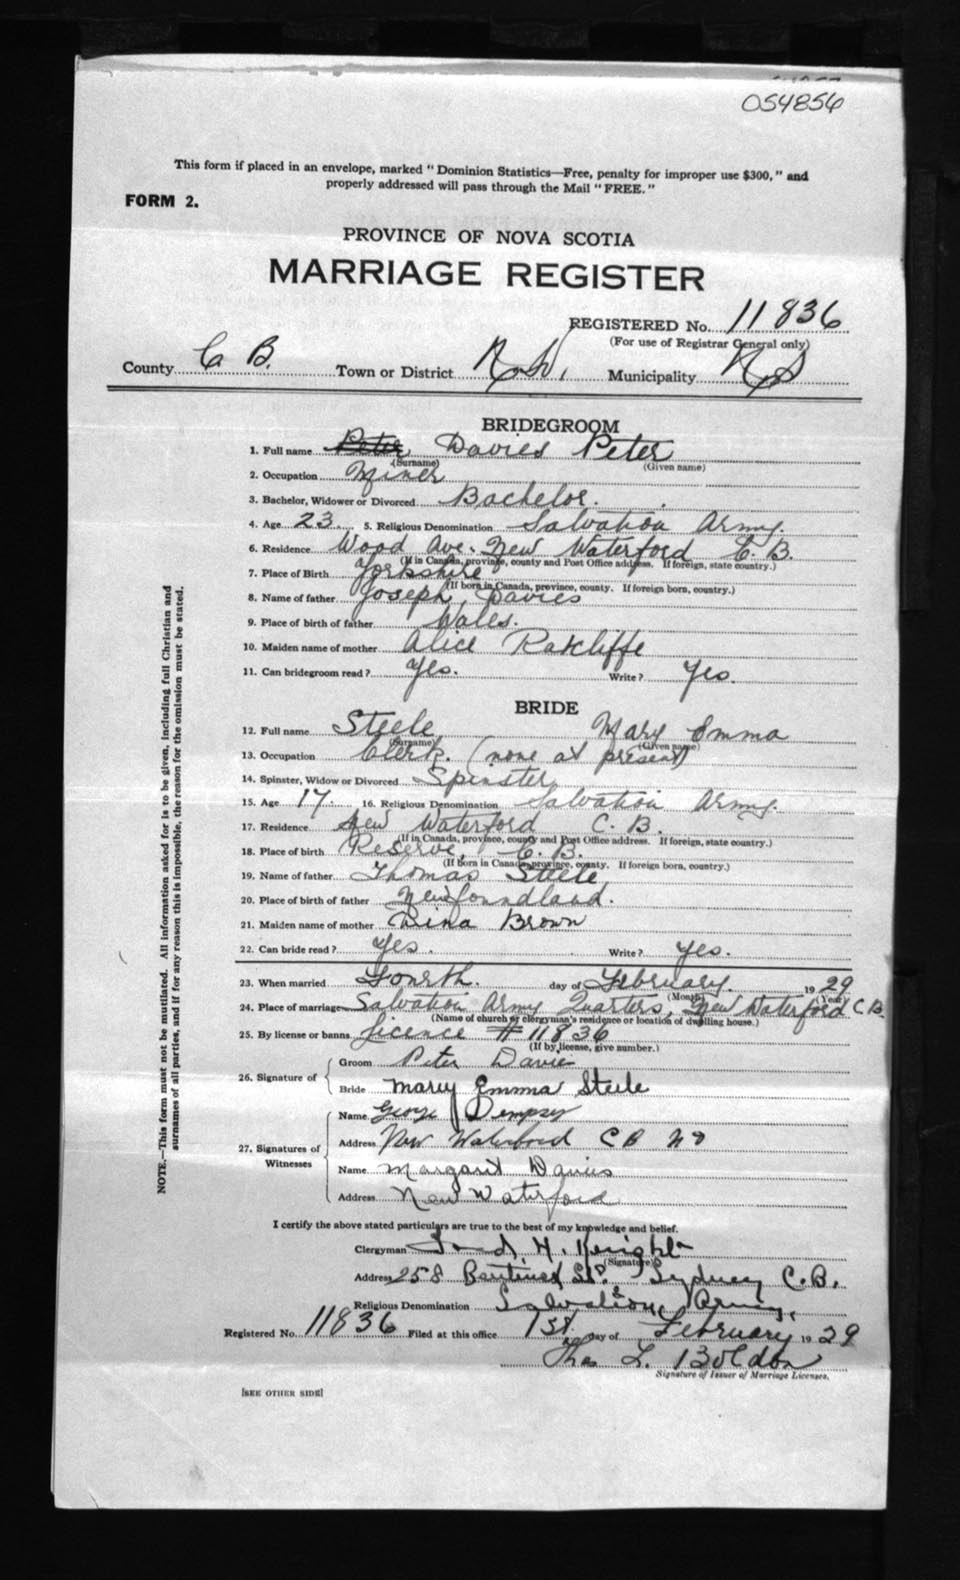 054856
This form if placed in an envelope, marked "Dominion Statistics—Free, penalty for improper use $300," and
properly addressed will pass through the Mail "FREE."
FORM 2.
PROVINCE OF NOVA SCOTIA
MARRIAGE REGISTER
REGISTERED No. 11836
(For use of Registrar General only)
County C B. Town or District N.W. Municipality N S
BRIDEGROOM
1. Full name Peter Davies Peter
(Surname) (Given name)
2. Occupation Miner
3. Bachelor, Widower or Divorced Bachelor.
4. Age 23. 5. Religious Denomination Salvation Army.
6. Residence Wood Ave. New Waterford C.B.
(If in Canada, province, county and Post Office address. If foreign, state country.)
7. Place of Birth Yorkshire
(If born in Canada, province, county. If foreign born, country.)
8. Name of father Joseph Davies
9. Place of birth of father Wales.
10. Maiden name of mother Alice Ratcliffe
11. Can bridegroom read? Yes. Write? Yes.
BRIDE
12. Full name Steele Mary Emma
(Surname) (Given name)
13. Occupation Clerk. (none at present)
14. Spinster, Widow or Divorced Spinster
15. Age 17. 16. Religious Denomination Salvation Army.
17. Residence New Waterford C.B.
(If in Canada, province, county and Post Office address. If foreign, state country.)
18. Place of birth Reserve, C.B.
(If born in Canada, province, county. If foreign born, country.)
19. Name of father Thomas Steele
20. Place of birth of father Newfoundland.
21. Maiden name of mother Brown
22. Can bride read? Yes. Write? Yes.
23. When married Fourth. day of February. 1929
(Month) (Year)
24. Place of marriage Salvation Army Quarters, New Waterford C B.
(Name of church or clergyman's residence or location of dwelling house.)
25. By license or banns licence # 11836
(If by license, give number.)
26. Signature of
Groom Peter Davies
Bride Mary Emma Steele
27. Signatures of Witnesses
Name George Dempsey
Address New Waterford C B N S
Name Margarit Davies
Address New Waterford
I certify the above stated particulars are true to the best of my knowledge and belief.
Clergyman H. Knight
(Signature)
Address 258 St. Sydney C.B.
Religious Denomination Salvation Army.
Registered No. 11836 Filed at this office 1st. day of February 1929
Thos L. Boldon
Signature of Issuer of Marriage Licenses.
[SEE OTHER SIDE]
NOTE.—This form must not be mutilated. All information asked for is to be given, including full Christian and
surnames of all parties, and if for any reason this is impossible, the reason for the omission must be stated.